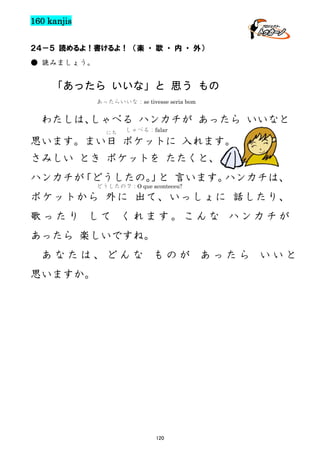 160 kanjis
プロジェクト
トゥカーノ
24－5 読めるよ！書けるよ！（楽・歌・内・外）
● 読みましょう。
「あったら いいな」と 思う もの
あったらいいな：se tivesse seria bom
わたしは、しゃべる ハンカチが あったら いいなと
にち しゃべる：falar
思います。まい日 ポケットに 入れます。
さみしい とき ポケットを たたくと、
ハンカチが「どうしたの。」と 言います。ハンカチは、
どうしたの？：O que aconteceu?
ポケットから 外に 出て、いっしょに 話したり、
歌ったり して くれます。こんな ハンカチが
あったら 楽しいですね。
あなたは、どんな ものが あったら いいと
思いますか。
120